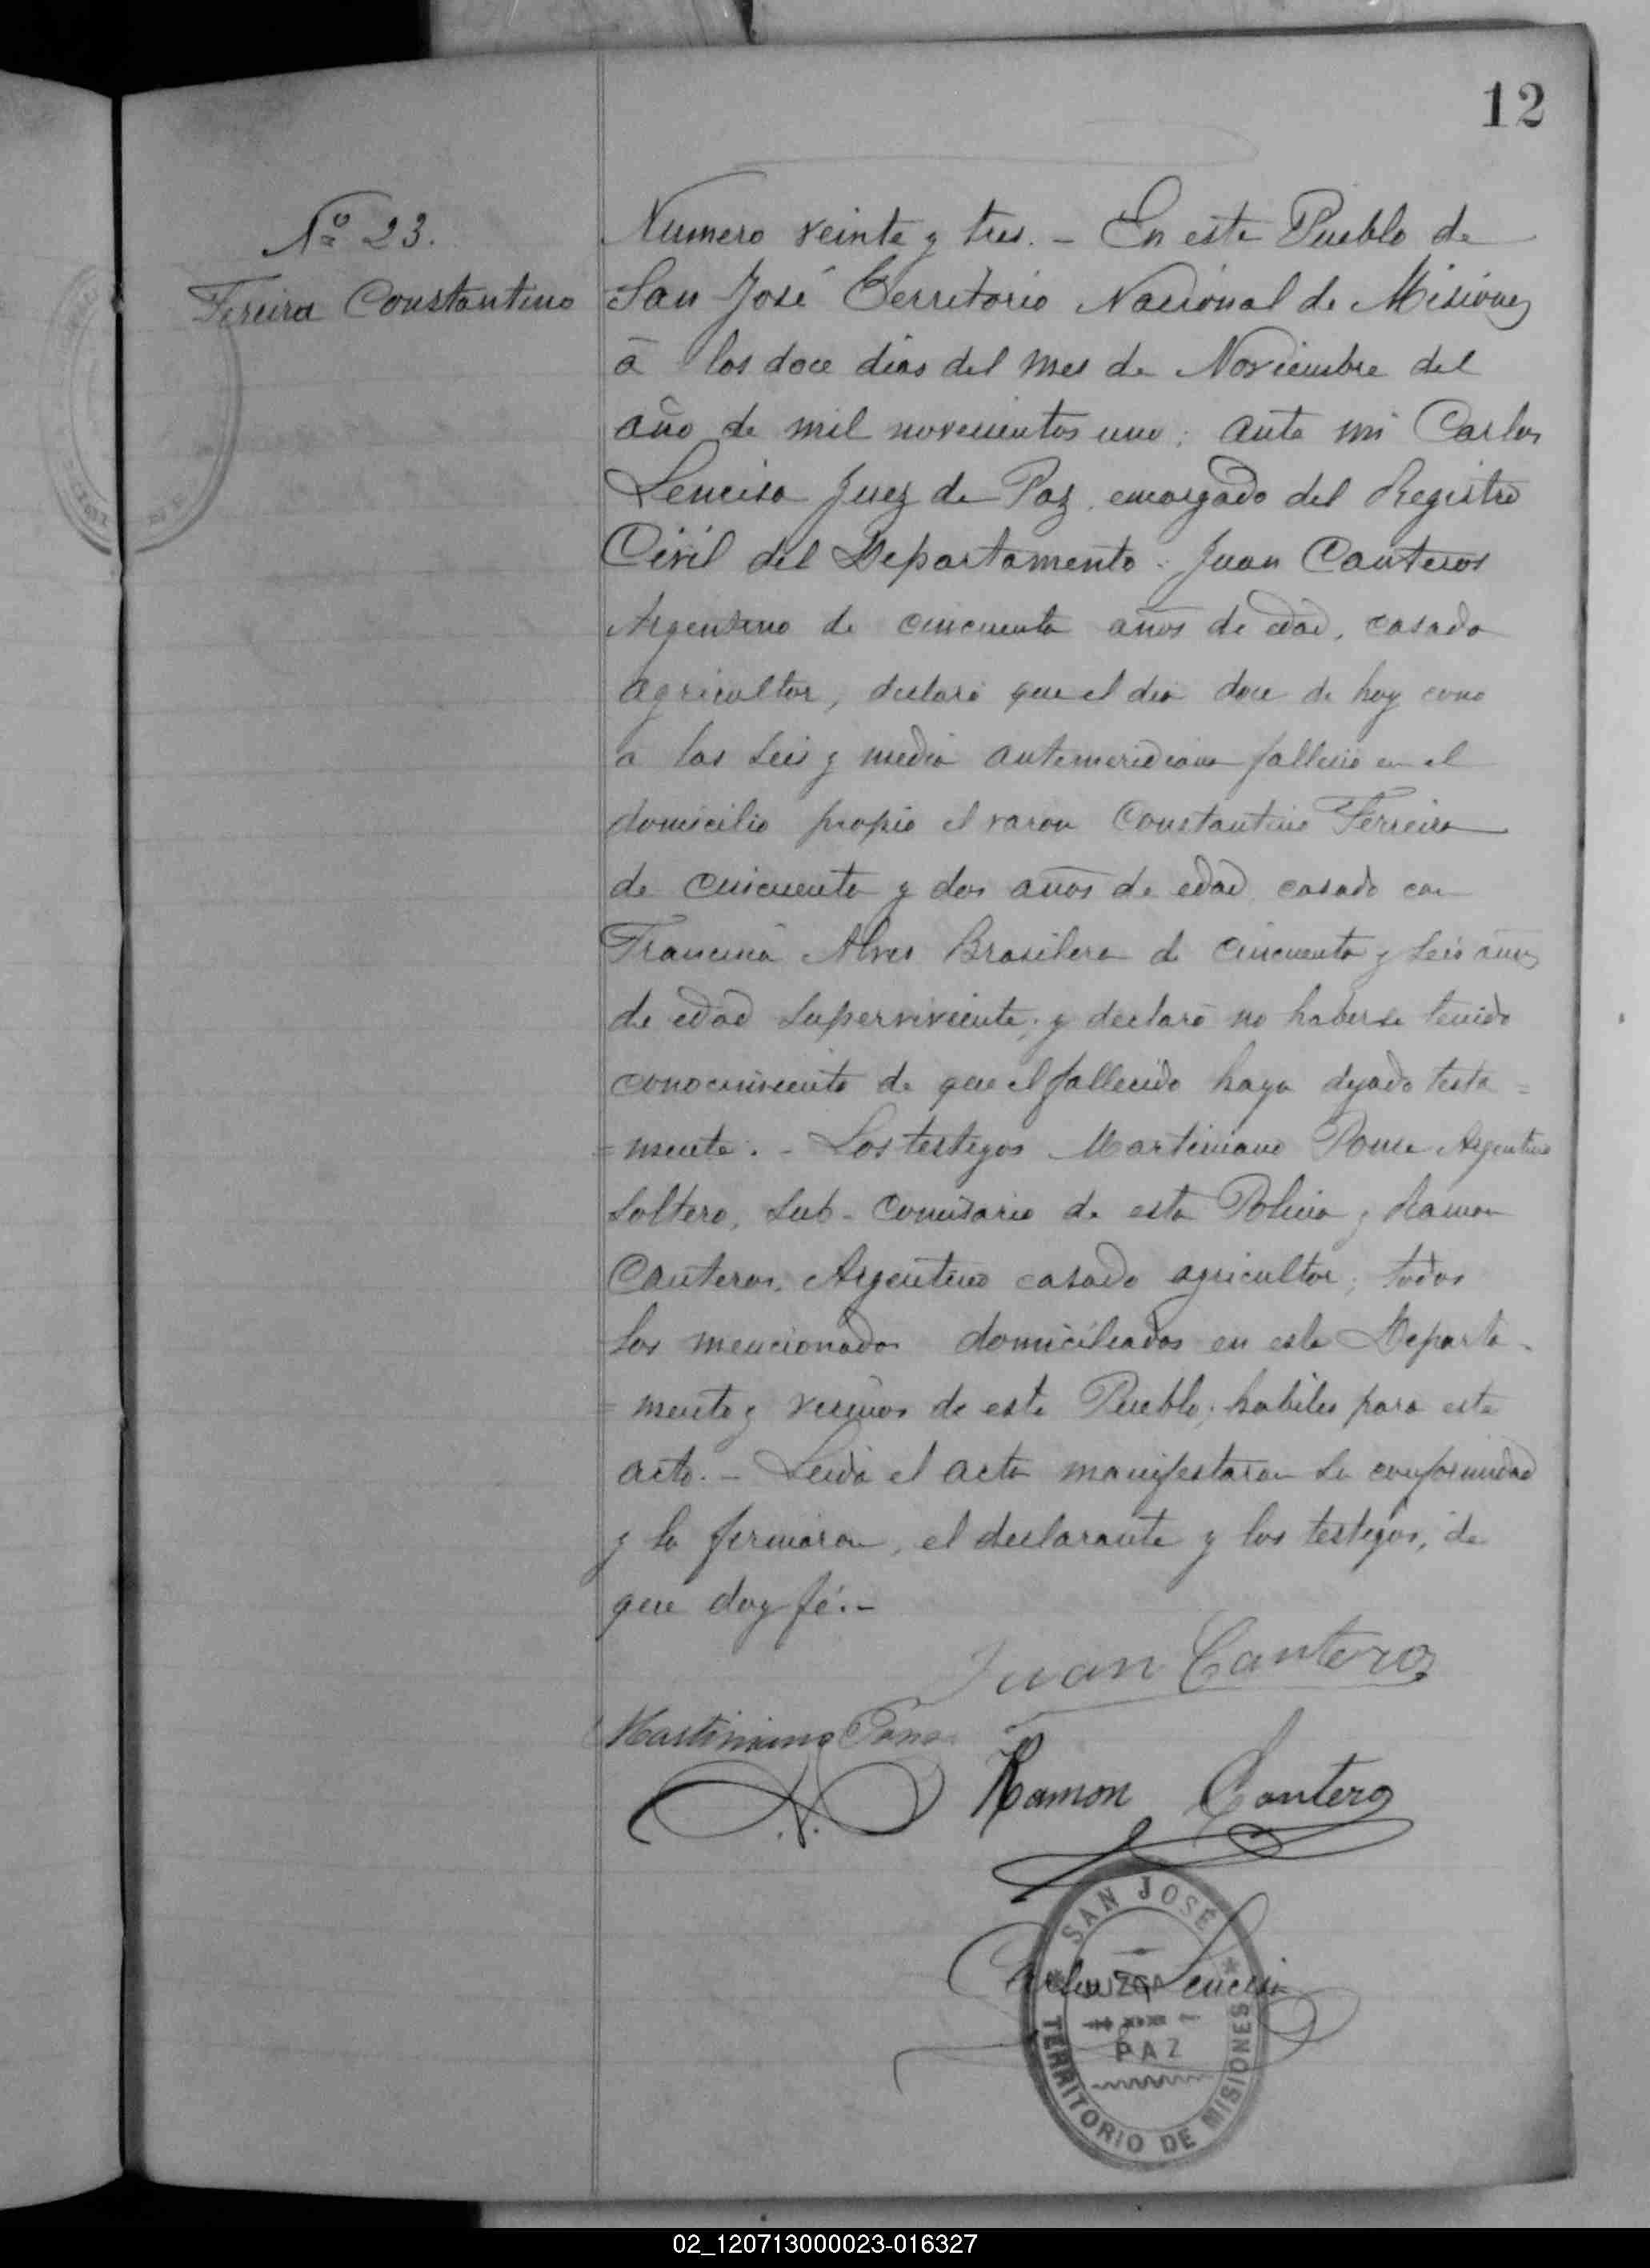 12
Nº 23.
Fereira Constantino
Numero veinte y tres. - En este Pueblo de
San José Territorio Nacional de Misiones
á los doce dias del mes de Noviembre del
año de mil novecientos uno; ante mi Carlos
Lencisa Juez de Paz, encargado del Registro
Civil del Departamento. Juan Canteros
Argentino de cincuenta años de edad, casado
agricultor, declaró que el dia doce de hoy como
a las seis y media antemeridiano falleció en el
domicilio propio el varon Constantino Ferreira
de cincuenta y dos años de edad casado con
Francisca Alves Brasilera de cincuenta y seis años
de edad superviviente; y declaró no haberse tenido
conocimiento de que el fallecido haya dejado testa =
= mento. - Los testigos Martiniano Ponce Argentino
soltero, sub-Comisario de esta Policia y Ramon
Canteros, Argentino casado agricultor; todos
los mencionados domiciliados en este Departa -
= mento y vecinos de este Pueblo, habiles para este
acto. - Leida el acta manifestaron su conformidad
y la firmaron, el declarante y los testigos, de
que doy fé. -
Juan Cantero
Martiniano Ponce
Ramon Cantero
SAN JOSÉ
Carlos Lencisa
JUZGADO
PAZ
TERRITORIO DE MISIONES
02_120713000023-016327